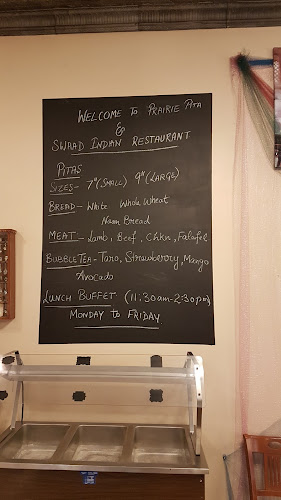 WELCOME TO PRAIRIE PITA
&
SWAAD INDIAN RESTAURANT
PITAS
SIZES - 7" (SMALL) 9" (LARGE)
BREAD - White Whole Wheat
Naan Bread
MEAT - Lamb, Beef, Chkn, Falafel
BUBBLE TEA - Taro, Strawberry, Mango
Avocado
LUNCH BUFFET (11:30am-2:30pm)
MONDAY to FRIDAY